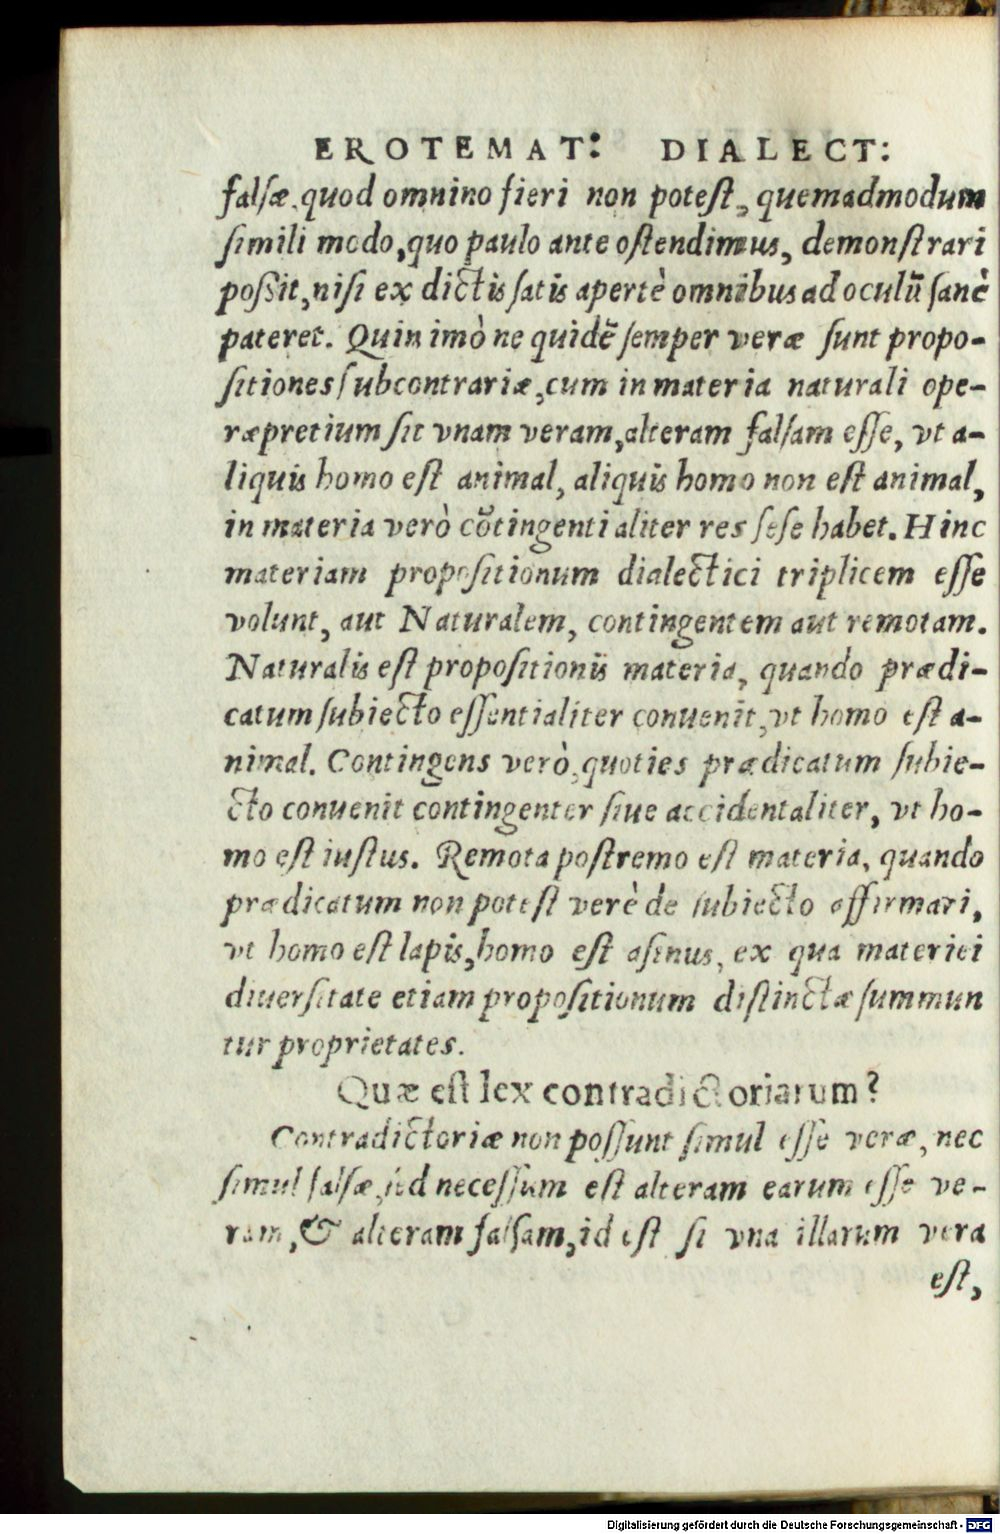 EROTEMAT: DIALECT:
falsæ, quod omnino fieri non potest, quemadmodum
simili modo, quo paulo ante ostendimus, demonstrari
possit, nisi ex dictis satis apertè omnibus ad oculū sanè
pateret. Quin imò ne quidē semper veræ sunt propo-
sitiones subcontrariæ, cum in materia naturali ope-
ræpretium sit vnam veram, alteram falsam esse, vt a-
liquis homo est animal, aliquis homo non est animal,
in materia verò cōtingenti aliter res sese habet. Hinc
materiam propositionum dialectici triplicem esse
volunt, aut Naturalem, contingentem aut remotam.
Naturalis est propositionis materia, quando prædi-
catum subiecto essentialiter conuenit, vt homo est a-
nimal. Contingens verò, quoties prædicatum subie-
cto conuenit contingenter siue accidentaliter, vt ho-
mo est iustus. Remota postremo est materia, quando
prædicatum non potest verè de subiecto affirmari,
vt homo est lapis, homo est asinus, ex qua materiei
diuersitate etiam propositionum distinctæ summun
tur proprietates.
Quæ est lex contradictoriarum?
Contradictoriæ non possunt simul esse veræ, nec
simul falsæ, sed necessum est alteram earum esse ve-
ram, & alteram falsam, id est si vna illarum vera
est,
Digitalisierung gefördert durch die Deutsche Forschungsgemeinschaft - DFG